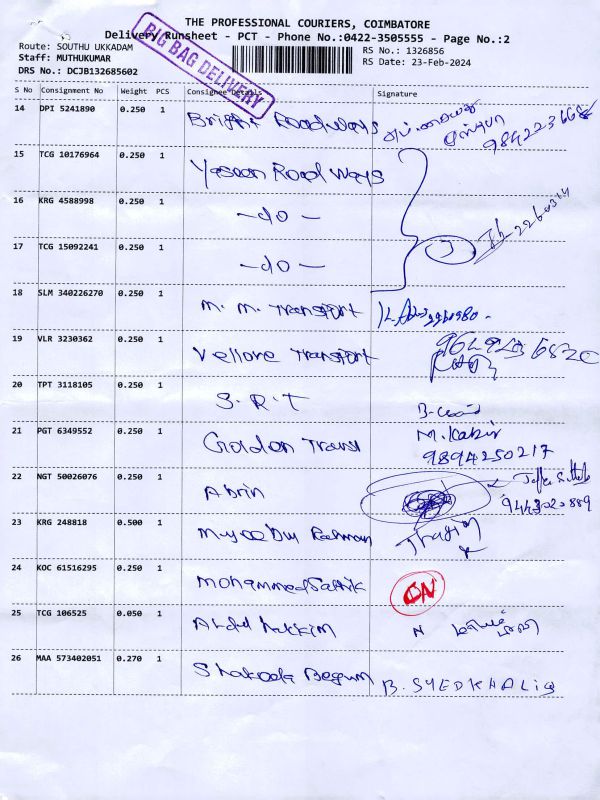 THE PROFESSIONAL COURIERS, COIMBATORE
Delivery Runsheet - PCT - Phone No.:0422-3505555 - Page No.:2
Route: SOUTHU UKKADAM
RS No.: 1326856
Staff: MUTHUKUMAR
RS Date: 23-Feb-2024
DRS No.: DCJB132685602
BIG BAG DELIVERY
S No Consignment No Weight PCS Consignee Details Signature
14 DPI 5241890 0.250 1 Bright Roadways
15 TCG 10176964 0.250 1 Yasaan Road Ways
16 KRG 4588998 0.250 1 -do-
17 TCG 15092241 0.250 1 -do-
18 SLM 340226270 0.250 1 M. M. Transport
19 VLR 3230362 0.250 1 Vellore Transport
20 TPT 3118105 0.250 1 S.R.T
21 PGT 6349552 0.250 1 Golden Transl M.Kabir
9894250217
22 NGT 50026076 0.250 1 Abrin
23 KRG 248818 0.500 1 Rahman
24 KOC 61516295 0.250 1 Mohammed Sathik ON
25 TCG 106525 0.050 1 Abdul Hakkim
26 MAA 573402051 0.270 1 Begum B. SYEDKHALIQ